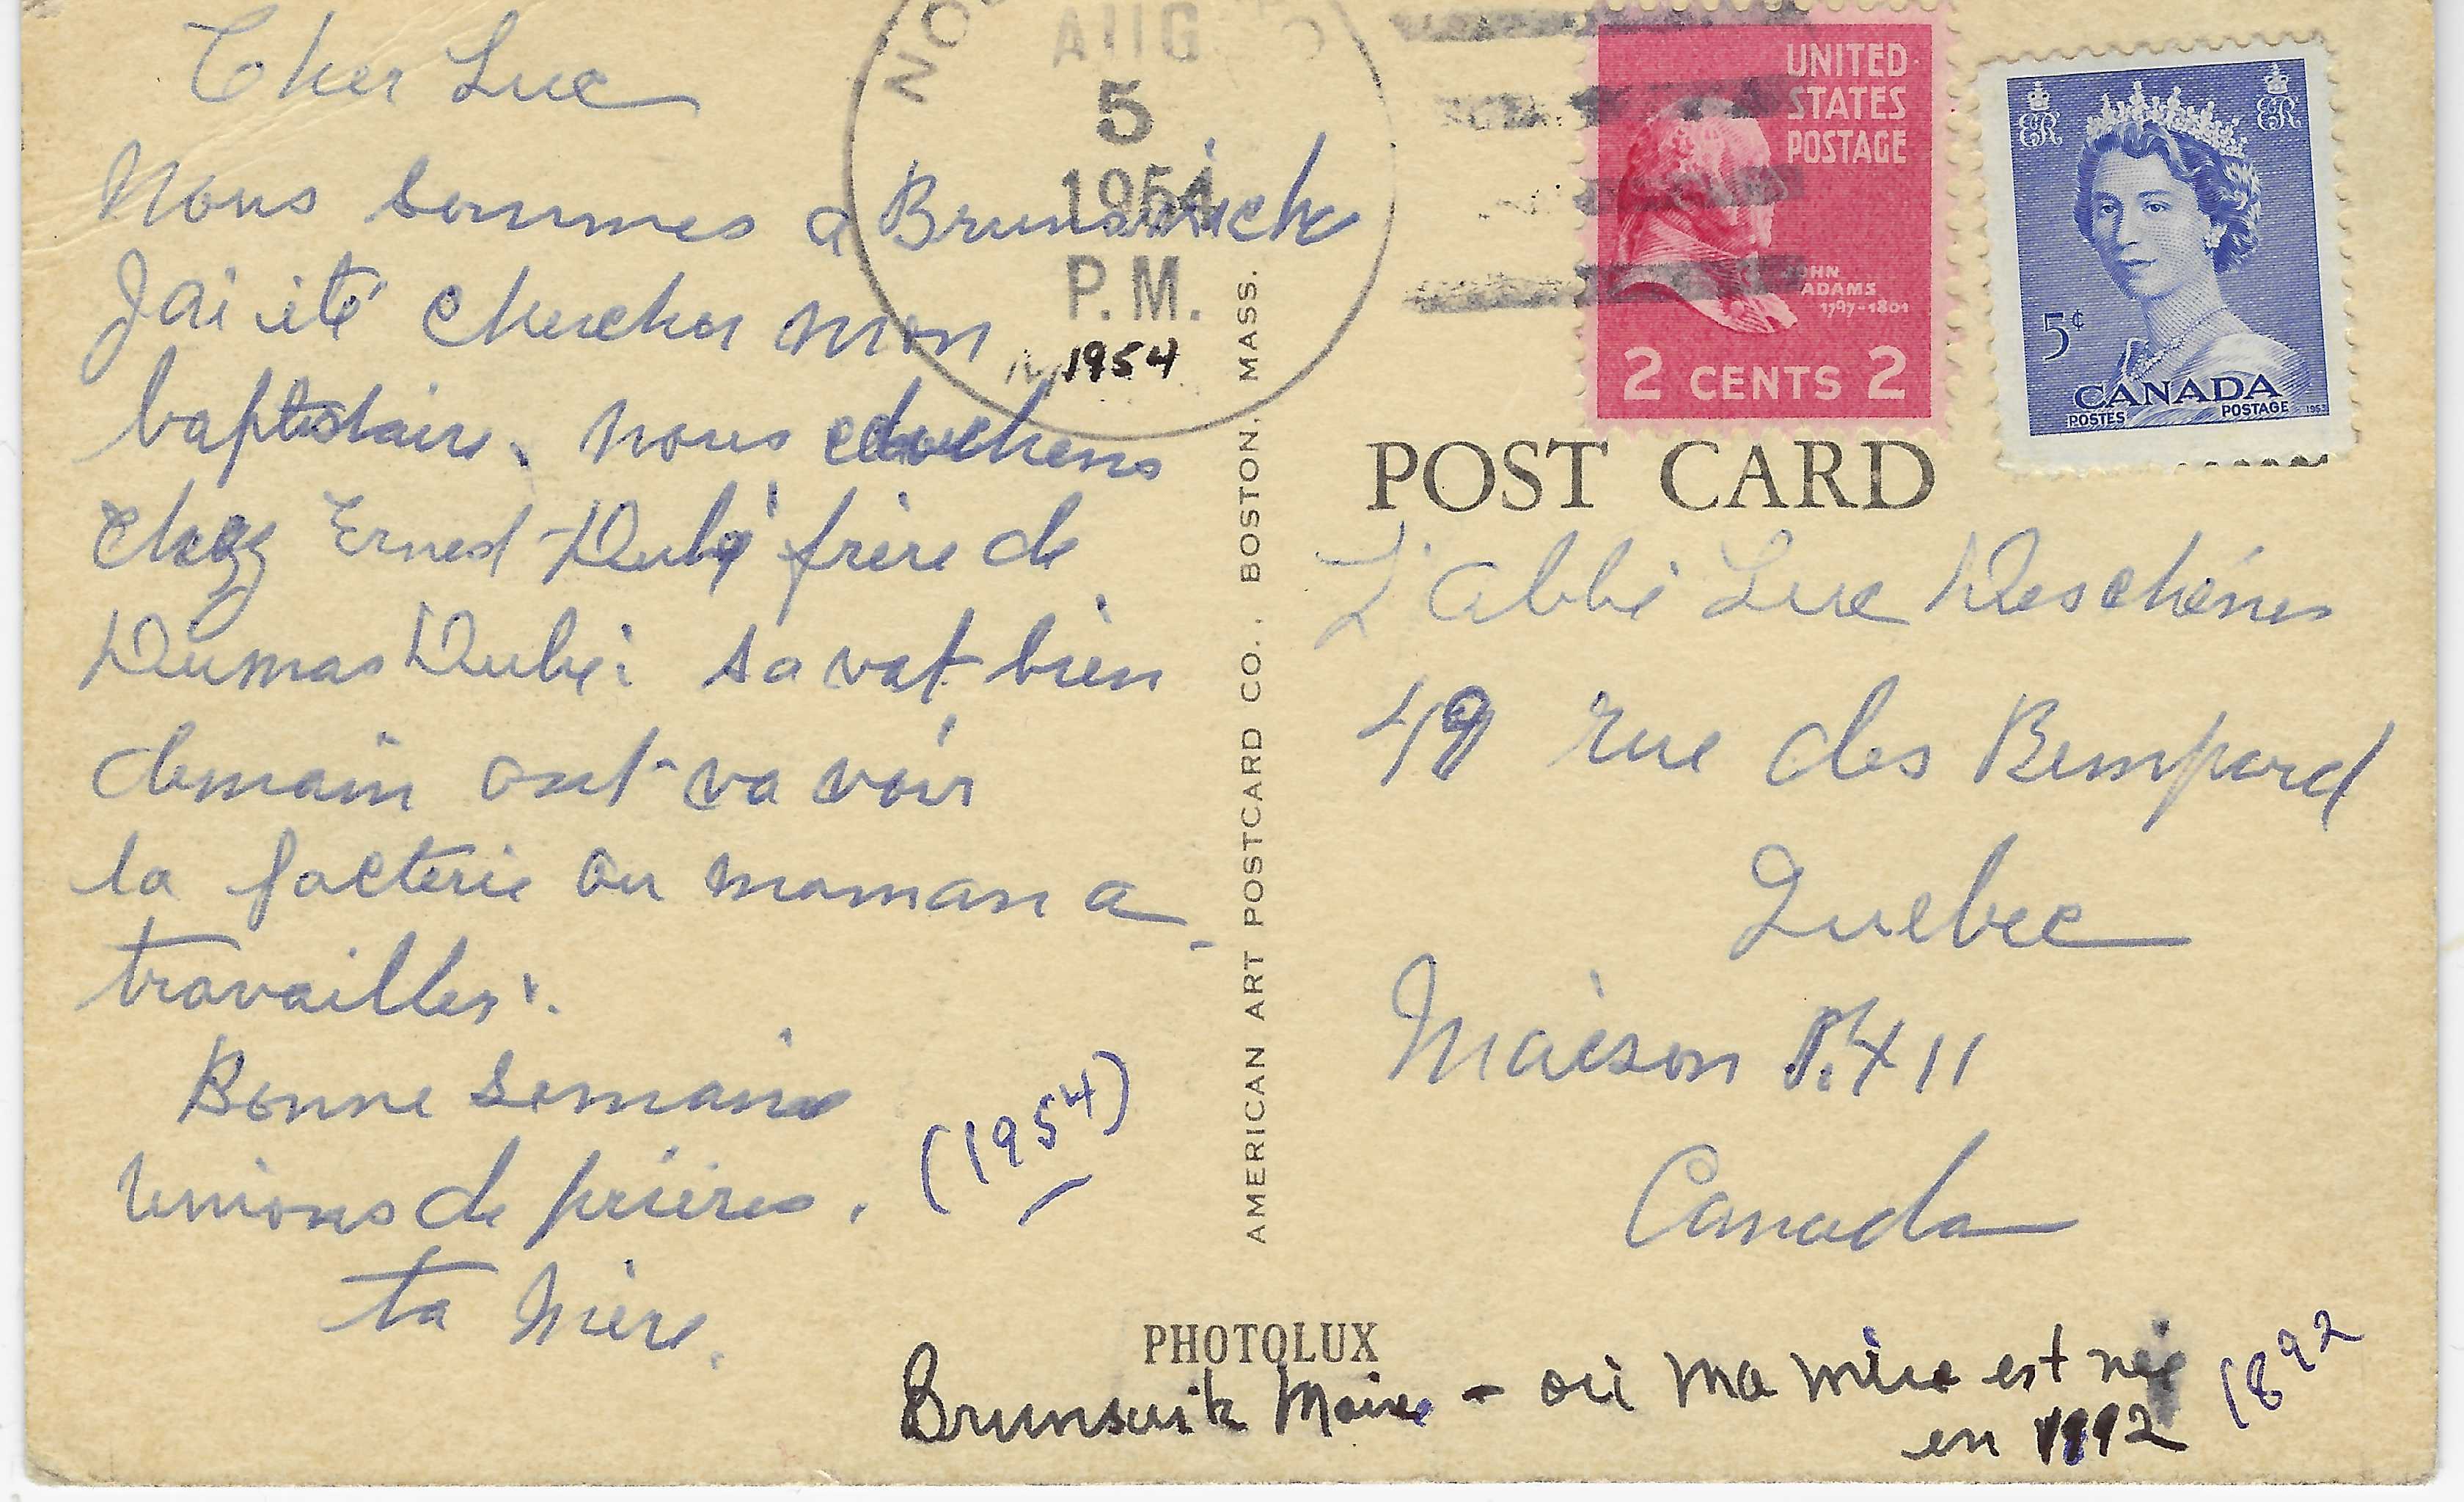 Cher Luc
Nous sommes a Brunswick
Jai été chercher mon
baptistaire. nous couchons
chez Ernest Dubé frère de
Dumas Dubé. sa vat bien
demain ont va voir
la facterie ou maman a
travailler.
Bonne semaine
Unions de prières.
ta mère.
(1954)
AUG
5
1954
P.M.
1954
UNITED
STATES
POSTAGE
JOHN
ADAMS
1797-1801
2 CENTS 2
ER ER
5¢
CANADA
POSTES POSTAGE 1953
POST CARD
L'abbé Luc Deschênes
49 rue des Rempard
Quebec
Maison 11
Canada
AMERICAN ART POSTCARD CO., BOSTON, MASS.
PHOTOLUX
Brunswik Maine - où ma mère est née
en 1892
1892